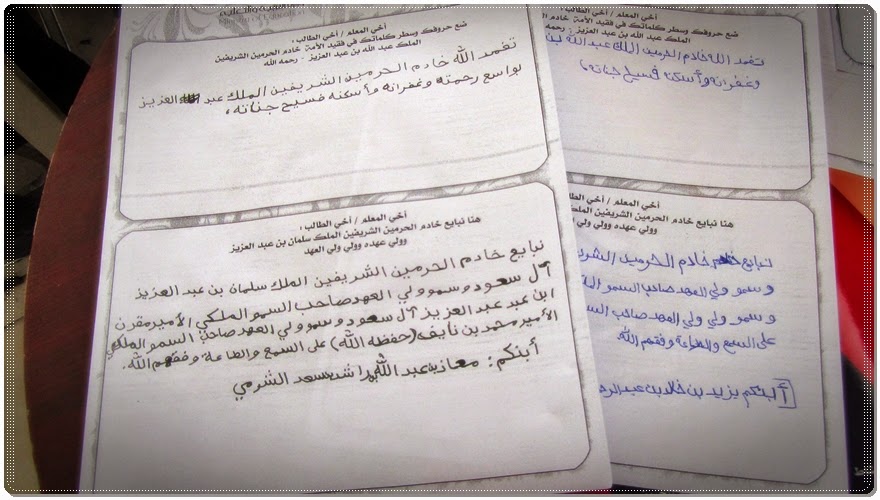 أخي المعلم / أخي الطالب ،
ضع حروفك وسطر كلماتك في فقيد الأمة خادم الحرمين الشريفين
الملك عبد الله بن عبد العزيز - رحمه الله
تغمد الله خادم الحرمين الشريفين الملك عبد العزيز
بواسع رحمته وغفرانه وأسكنه فسيح جناته ،
أخي المعلم / أخي الطالب ،
هنا نبايع خادم الحرمين الشريفين الملك سلمان بن عبد العزيز
وولي عهده وولي ولي العهد
نبايع خادم الحرمين الشريفين الملك سلمان بن عبد العزيز
آل سعود وسمو ولي العهد صاحب السمو الملكي الأمير مقرن
ابن عبد عبد العزيز آل سعود وسمو ولي العهد صاحب السمو الملكي
الأمير محمد بن نايف (حفظه الله) على السمع والطاعة وفقهم الله.
أبنكم : معاذ بن عبد الله راشد سعد الشرمي
أخي المعلم / أخي الطالب ،
ضع حروفك وسطر كلماتك في فقيد الأمة خادم الحرمين
الملك عبد الله بن عبد العزيز - رحمه
تغمد الله خادم الحرمين الملك عبد الله بن
وغفرانه وأسكنه فسيح جناته .
أخي المعلم / أخي الطالب ،
نبايع خادم الحرمين الشريفين الملك سلمان بن
وولي عهده وولي ولي العهد
نبايع خادم الحرمين
وسمو ولي العهد صاحب السمو
وسمو ولي ولي العهد صاحب
على السمع والطاعة وفقهم الله
أبنكم يزيد بن خالد بن عبد